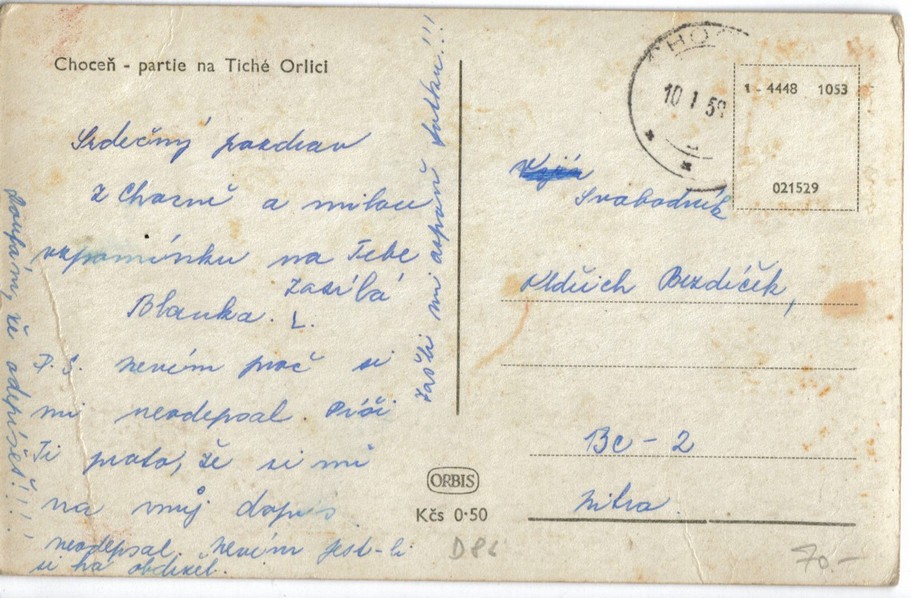 Choceň - partie na Tiché Orlici
Srdečný pozdrav
z Chocně a milou
vzpomínku na Tebe
zasílá
Blanka. L.
P.S. nevím proč si
mi neodepsal. Píši
Ti proto, že si mi
na můj dopis
neodepsal. nevím jest-li
si ho obdržel.
doufám, že odepíšeš!!!
zašli mi aspoň fotku!!!
CHOC
10 1 59
1 - 4448 1053
021529
Svobodník
Oldřich Bezdíček,
Bc - 2
Nitra
ORBIS
Kčs 0·50
D86
70.-